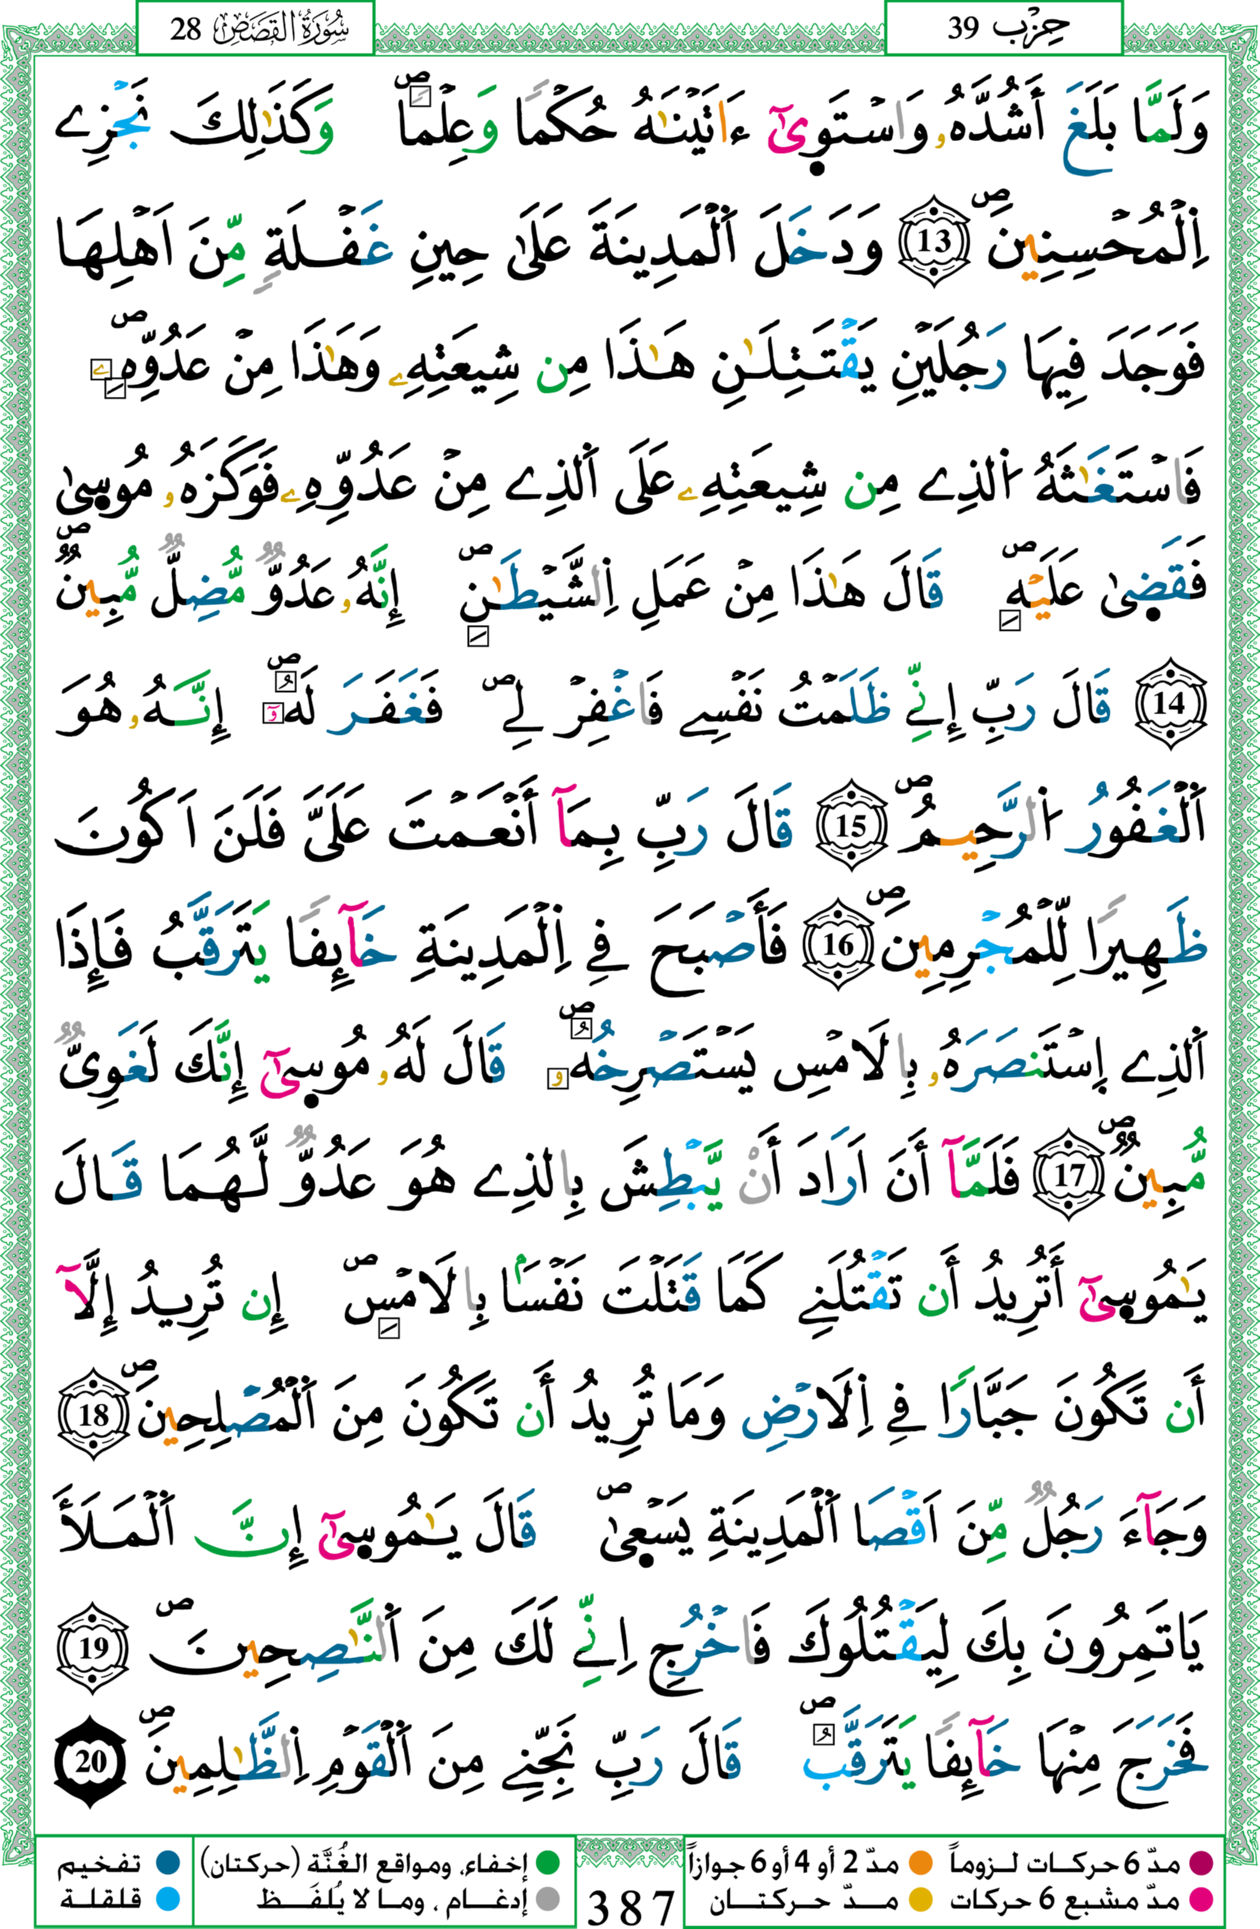 حِزْب 39
سُورَةُ الْقَصَصِ 28
وَلَمَّا بَلَغَ أَشُدَّهُۥ وَاسْتَوۭيٰٓ ءَاتَيْنَٰهُ حُكْمًا وَعِلْمًاۖ وَكَذَٰلِكَ نَجْزِے
اِ۬لْمُحْسِنِينَۖ 13 وَدَخَلَ اَ۬لْمَدِينَةَ عَلَىٰ حِينِ غَفْلَةٍ مِّنَ اَهْلِهَا
فَوَجَدَ فِيهَا رَجُلَيْنِ يَقْتَتِلَٰنِ هَٰذَا مِن شِيعَتِهِۦ وَهَٰذَا مِنْ عَدُوِّهِۦۖ
فَاسْتَغَٰثَهُ اُ۬لذِے مِن شِيعَتِهِۦ عَلَى اَ۬لذِے مِنْ عَدُوِّهِۦ فَوَكَزَهُۥ مُوسۭيٰ
فَقَضۭيٰ عَلَيْهِۖ قَالَ هَٰذَا مِنْ عَمَلِ اِ۬لشَّيْطَٰنِۖ إِنَّهُۥ عَدُوٌّ مُّضِلٌّ مُّبِينٌۖ
14 قَالَ رَبِّ إِنِّے ظَلَمْتُ نَفْسِے فَاغْفِرْ لِےۖ فَغَفَرَ لَهُۥٓۖ إِنَّهُۥ هُوَ
اَ۬لْغَفُورُ اُ۬لرَّحِيمُۖ 15 قَالَ رَبِّ بِمَآ أَنْعَمْتَ عَلَيَّ فَلَنَ اَكُونَ
ظَهِيرًا لِّلْمُجْرِمِينَۖ 16 فَأَصْبَحَ فِے اِ۬لْمَدِينَةِ خَآئِفًا يَتَرَقَّبُ فَإِذَا
اَ۬لذِے اِ۪سْتَنصَرَهُۥ بِالَامْسِ يَسْتَصْرِخُهُۥۖ قَالَ لَهُۥ مُوسۭيٰٓ إِنَّكَ لَغَوِيٌّ
مُّبِينٌۖ 17 فَلَمَّآ أَنَ اَرَادَ أَنْ يَّبْطِشَ بِالذِے هُوَ عَدُوٌّ لَّهُمَا قَالَ
يَٰمُوسۭيٰٓ أَتُرِيدُ أَن تَقْتُلَنِے كَمَا قَتَلْتَ نَفْسَاۢ بِالَامْسِۖ إِن تُرِيدُ إِلَّآ
أَن تَكُونَ جَبَّارًا فِے اِ۬لَارْضِ وَمَا تُرِيدُ أَن تَكُونَ مِنَ اَ۬لْمُصْلِحِينَۖ 18
وَجَآءَ رَجُلٌ مِّنَ اَقْصَا اَ۬لْمَدِينَةِ يَسْعۭيٰۖ قَالَ يَٰمُوسۭيٰٓ إِنَّ اَ۬لْمَلَأَ
يَاتَمِرُونَ بِكَ لِيَقْتُلُوكَ فَاخْرُجِ اِنِّے لَكَ مِنَ اَ۬لنَّٰصِحِينَۖ 19
فَخَرَجَ مِنْهَا خَآئِفًا يَتَرَقَّبُۖ قَالَ رَبِّ نَجِّنِے مِنَ اَ۬لْقَوْمِ اِ۬لظَّٰلِمِينَۖ 20
مدّ 6 حركات لـزوماً مدّ 2 أو 4 أو 6 جوازاً
مدّ مشبع 6 حركات مـدّ حـركتـان
387
إخفاء، ومواقع الغُنَّة (حركتان) تفخيم
إدغـام، ومـا لا يُلفَـظ قلقلة